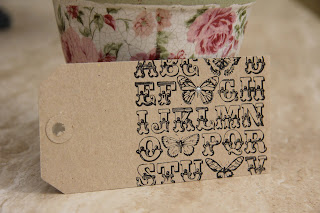 ABC
EF GH
IJKLMN
O PQR
STU V